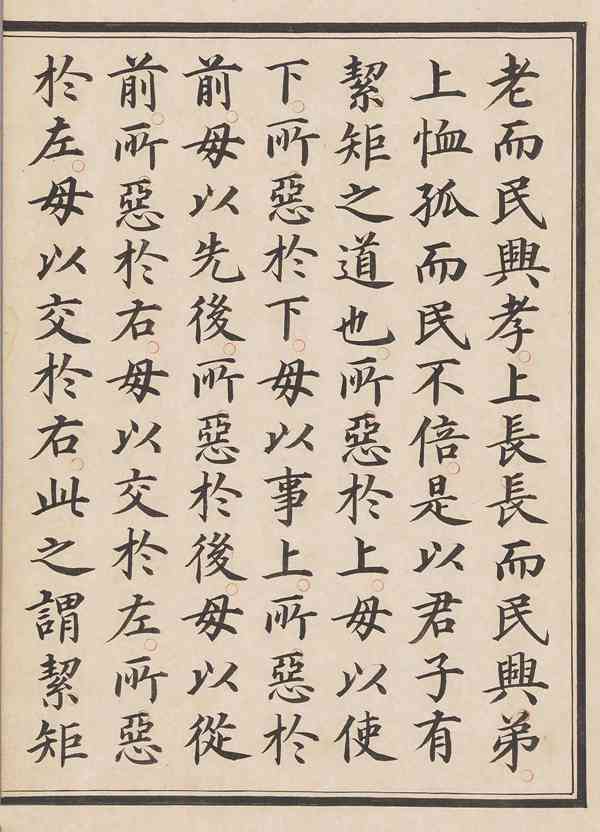 老而民興孝。上長長而民興弟。
上恤孤而民不倍。是以君子有
絜矩之道也。所惡於上。毋以使
下。所惡於下。毋以事上。所惡於
前。毋以先後。所惡於後。毋以從
前。所惡於右。毋以交於左。所惡
於左。毋以交於右。此之謂絜矩